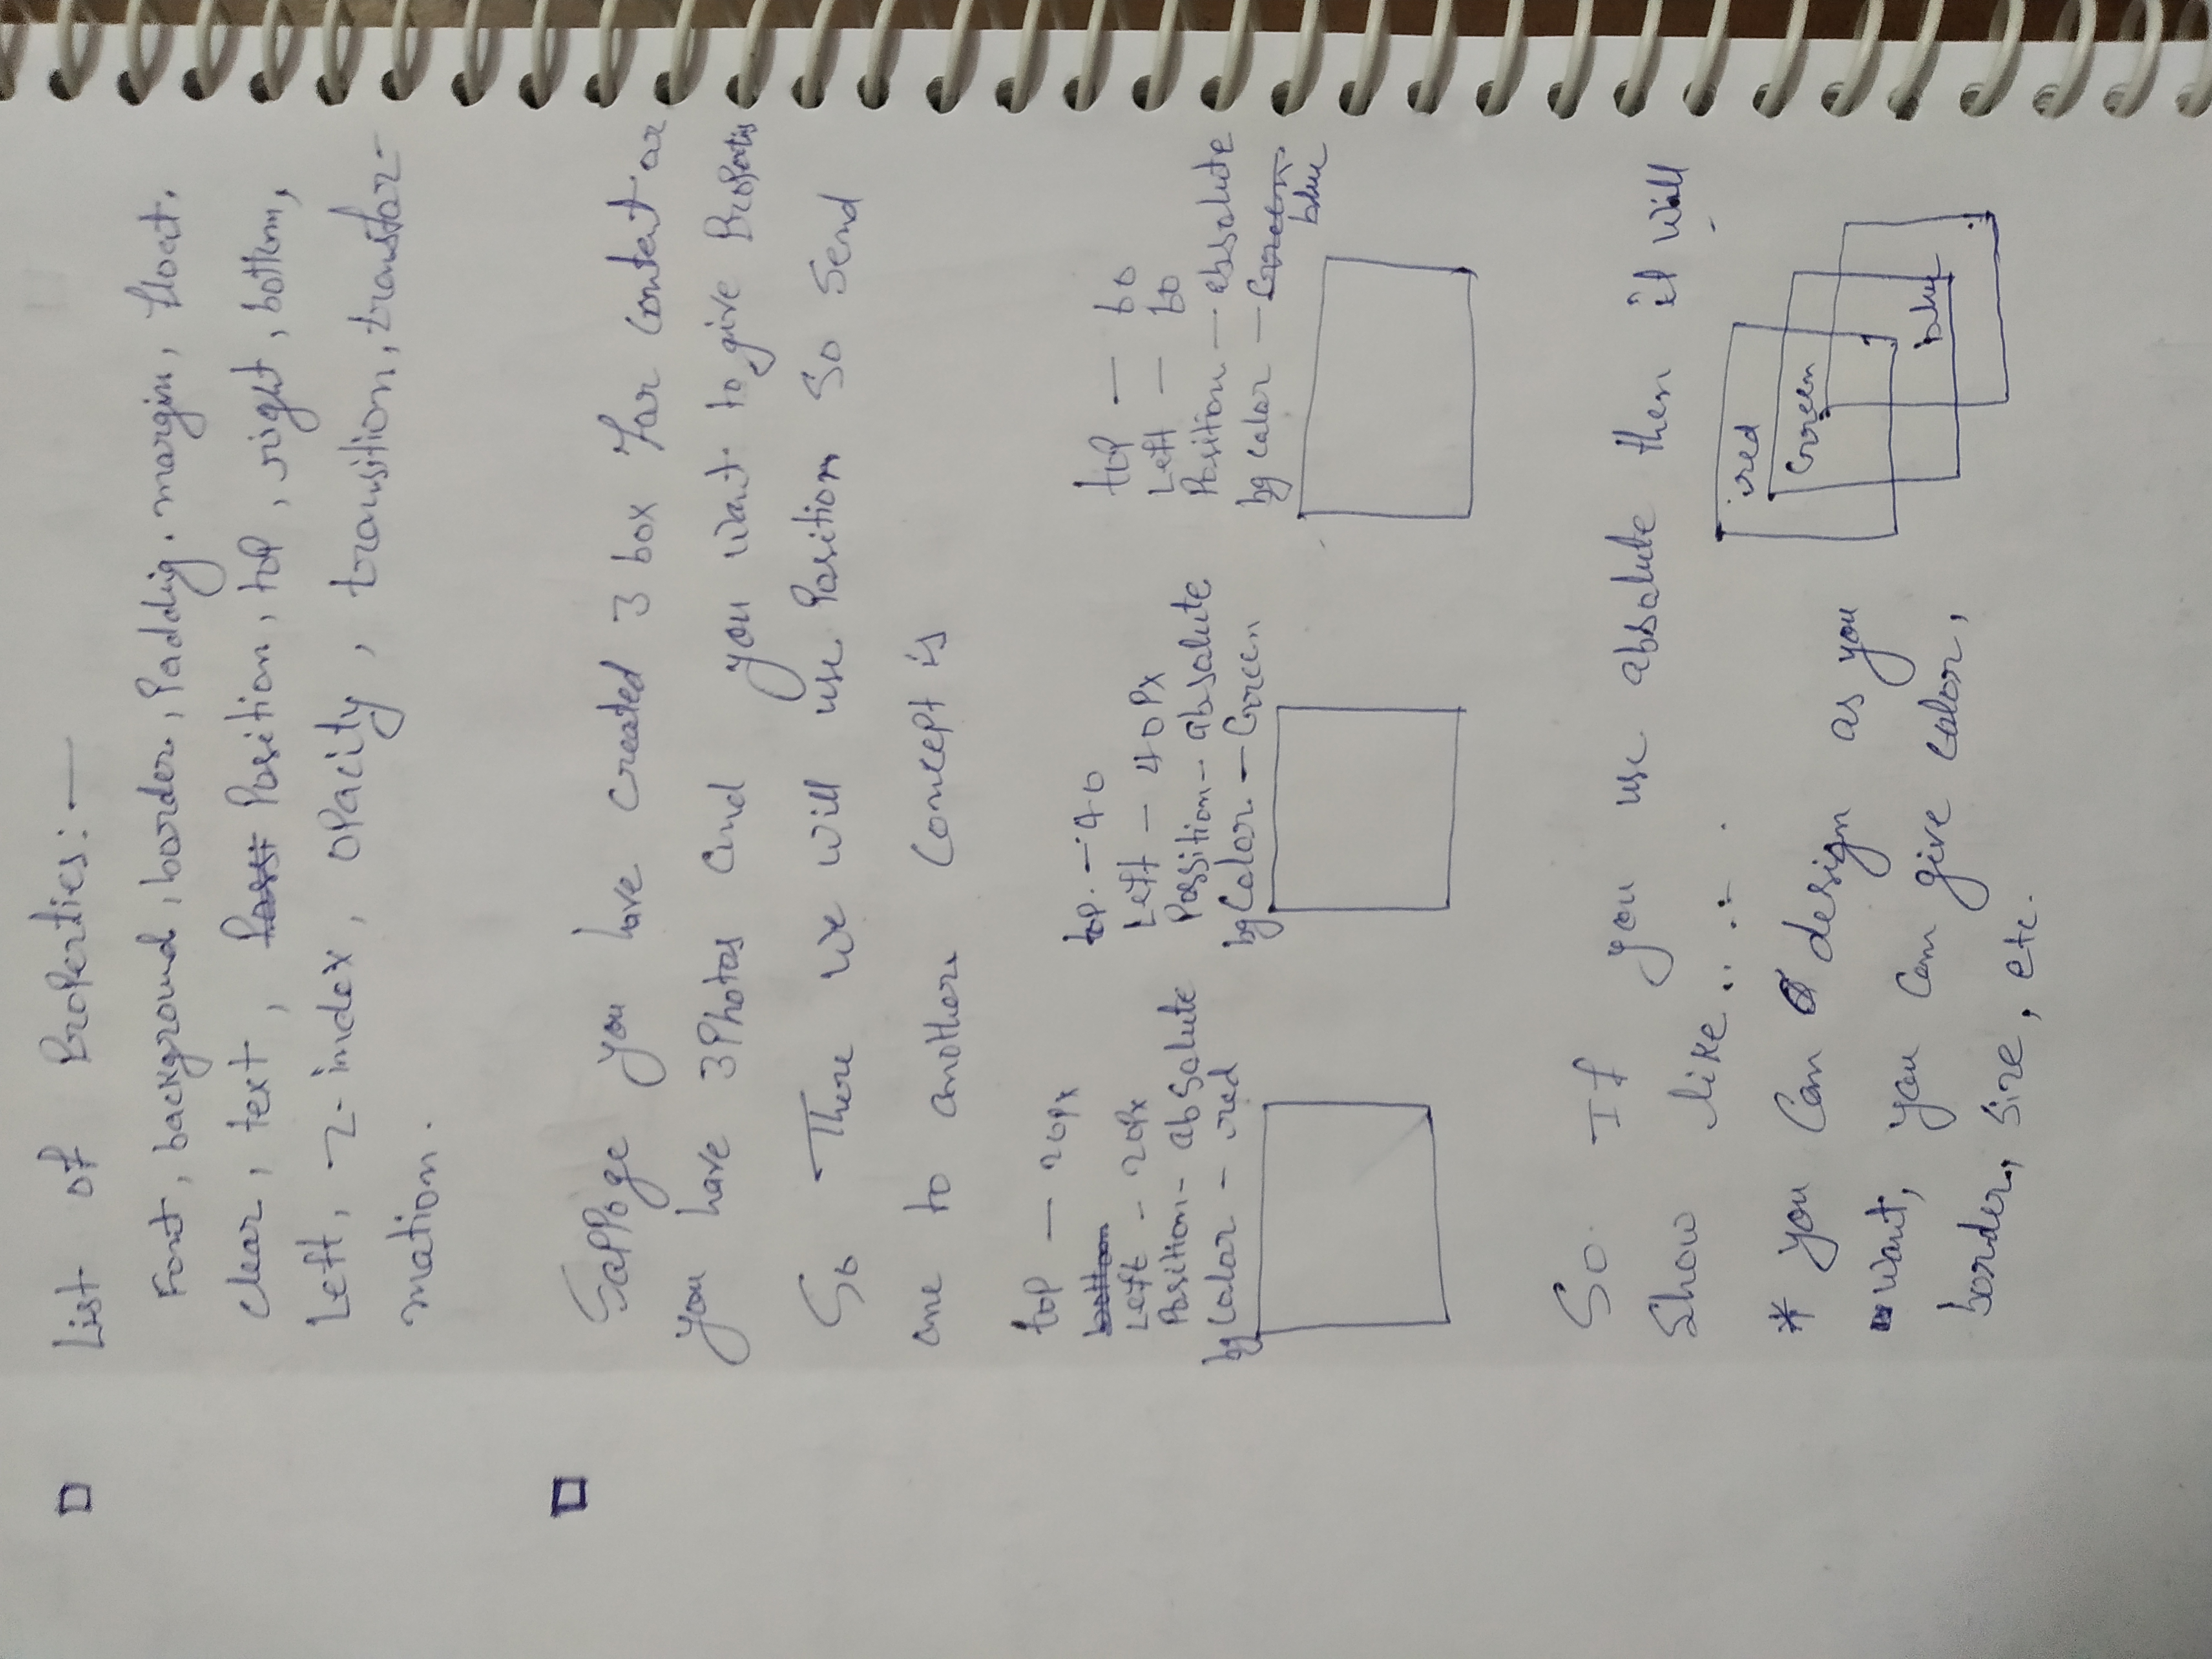 List of Properties:—
Font, background, border, Padding, margin, float,
clear, text, Position, top, right, bottom,
Left, Z-index, opacity, transition, transfor-
mation.
Sappoge you have created 3 box for content or
you have 3 Photos and you want to give Properties
So There we will use Position So Send
one to another Concept is
top — 20px
bottom
Left - 20Px
Position - absolute
bg Color - red
top. - 40
Left - 40Px
Position - absolute
bg Color - Green
top — 60
Left — 60
Position — absolute
bg color — Green
blue
So. If you use absolute then it will
Show like
red
Green
blue
* you Can design as you
want, you Can give color,
border, size, etc.